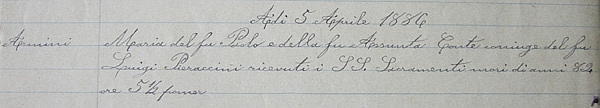 Adi 5 Aprile 1886
Armini Maria del fu Paolo e della fu Assunta Conte coniuge del fu
Luigi Pieraccini ricevuti i S.S. Sacramenti morì di anni 82
ore 5 1/2 pomer